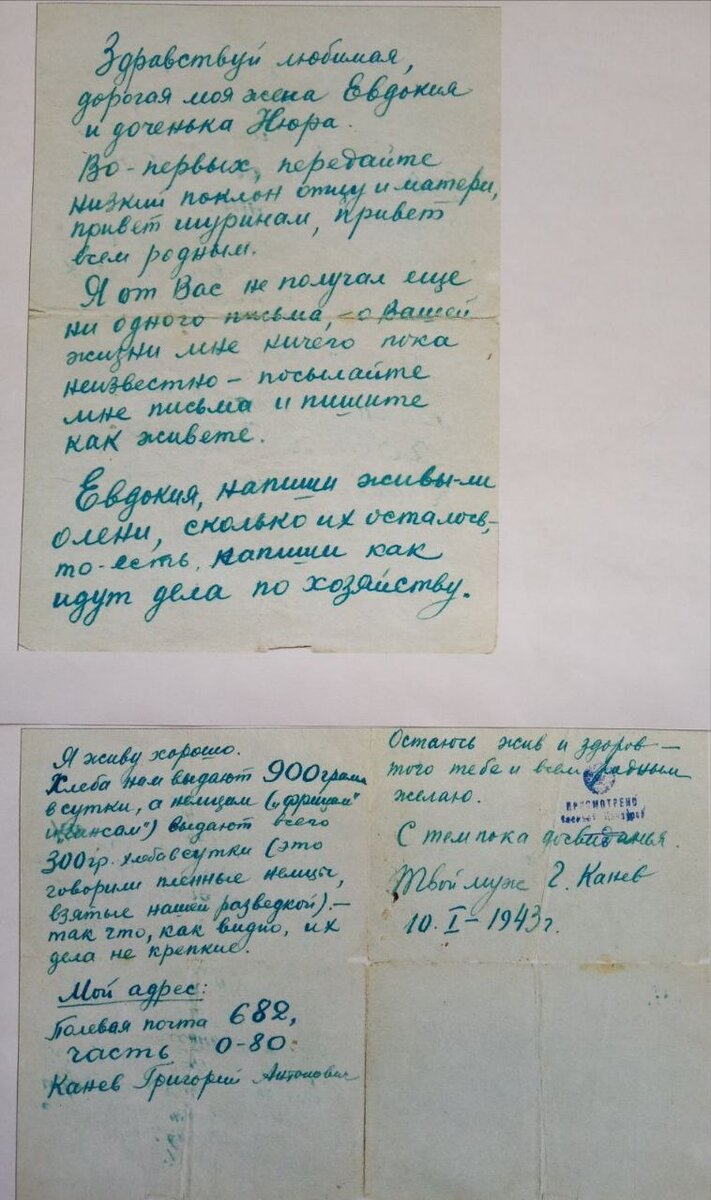 Здравствуй любимая,
дорогая моя жена Евдокия
и доченька Нюра.
Во-первых, передайте
низкий поклон отцу и матери,
привет шуринам, привет
всем родным.
Я от Вас не получал еще
ни одного письма, - о Вашей
жизни мне ничего пока
неизвестно - посылайте
мне письма и пишите
как живете.
Евдокия, напиши живы-ли
олени, сколько их осталось,
то-есть, напиши как
идут дела по хозяйству.
Я живу хорошо.
Хлеба нам выдают 900 грамм
в сутки, а немцам ("фрицам"
и "гансам") выдают всего
300 гр. хлеба в сутки (это
говорили пленные немцы,
взятые нашей разведкой). -
так что, как видно, их
дела не крепкие.
Мой адрес:
Полевая почта 682,
часть 0-80
Канев Григорий Антонович
Остаюсь жив и здоров -
того тебе и всем родным
желаю.
ПРОСМОТРЕНО
Военной Цензурой
С тем пока досвиданья.
Твой муж Г. Канев
10. I - 1943 г.